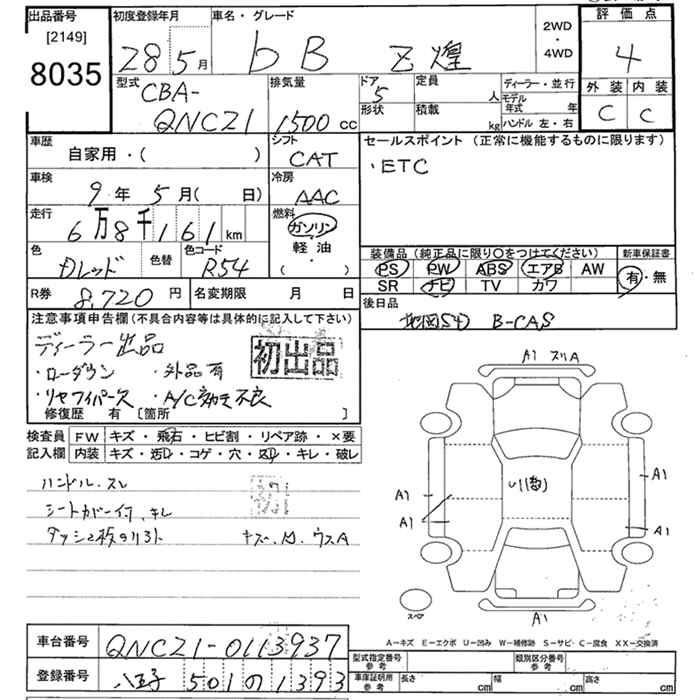 出品番号 初度登録年月 車名・グレード 2WD ・ 4WD 評価点
[2149] 8035 28 5月 bB Z煌 4
型式 排気量 ドア 定員 ディーラー・並行 外装 内装
CBA- QNCZ1 1500 cc 5 人 モデル年式 年 C C
形状 積載 kg ハンドル 左・右
車歴 シフト セールスポイント (正常に機能するものに限ります)
自家用・( ) CAT ・ETC
車検 冷房
9年 5月( 日) AAC
走行 燃料
6万8千161km ガソリン
軽油
・( )
色 色替 色コード 装備品 (純正品に限り○をつけてください) 新車保証書
レッド R54 PS PW ABS エアB AW 有・無
SR ナビ TV カワ
R券 8,720円 名変期限 月 日 後日品
地図SD B-CAS
注意事項申告欄(不具合内容等は具体的に記入して下さい)
ディーラー出品 初出品
・ローダウン ・外品有
・リヤワイパーズレ ・A/C効き不良
修復歴 有 [箇所 ]
検査員 FW キズ・飛石・ヒビ割・リペア跡・×要
記入欄 内装 キズ・汚れ・コゲ・穴・スレ・キレ・破レ
ハンドル・スレ
シートカバー付、キレ
A1 スリA
A1
A1
A1
A1
スペア
A1
A-キズ E-エクボ U-凹み W-補修跡 S-サビ・C-腐食 XX-交換済
車台番号 QNCZ1-0113937 型式指定番号 参考 類別区分番号 参考
登録番号 八王子 501 1393 車庫証明用 参考 長さ cm 幅 cm 高さ cm